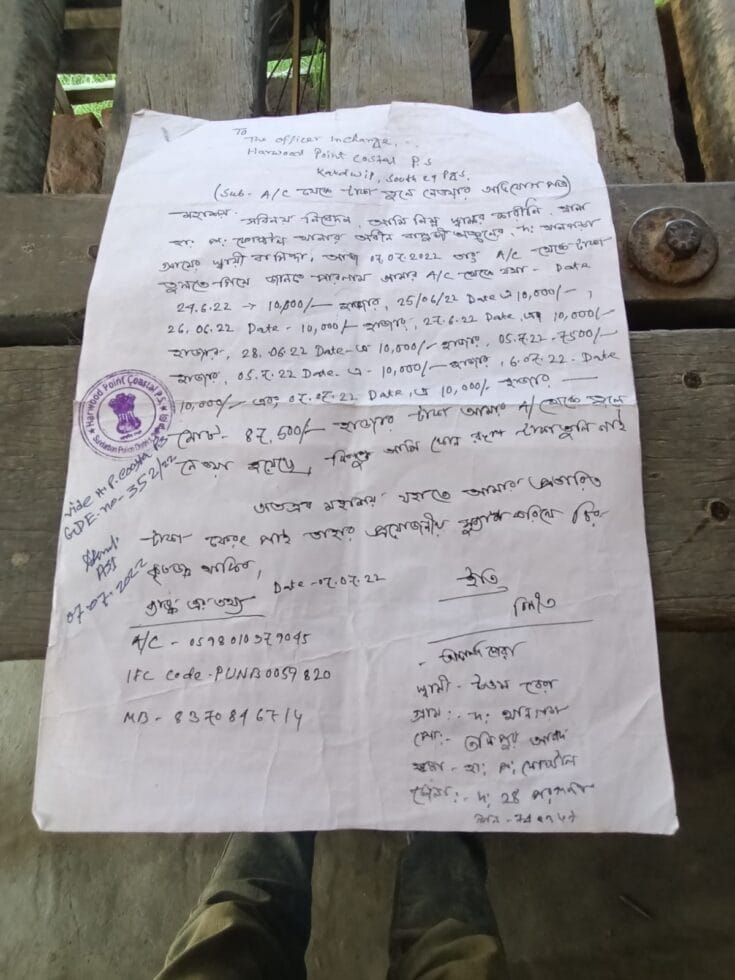 To
The officer Incharge,
Harwood Point Costal P.S
Kakdwip, South 24 Pgs,
(Sub - A/C থেকে টাকা তুলে নেওয়ার অভিযোগ পত্র)
মহাশয়,
সবিনয় নিবেদন, আমি নিম্ন স্বাক্ষর কারীনি, থানা
হা: প: কোস্টাল থানার অধীন
গ্রামের স্থায়ী বাসিন্দা, আজ 07.07.2022 তাং A/C থেকে টাকা
তুলতে গিয়ে জানতে পারলাম আমার A/C থেকে যথা - Date
24.6.22 → 10,000/- হাজার, 25/06/22 Date এ 10,000/-,
26.06.22 Date - 10,000/- হাজার, 27.6.22 Date, এ 10,000/-
হাজার, 28.06.22 Date-এ 10,000/- হাজার, 05.7.22-7500/-
হাজার, 05.7.22 Date এ - 10,000/- হাজার, 6.07.22. Date
10,000/- এবং 07.07.22 Date, এ 10,000/- হাজার —
মোট- 87,500/- হাজার টাকা আমার A/C থেকে তুলে
নেওয়া হয়েছে, কিন্তু আমি কোন রূপ টাকা তুলি নাই
অতএব মহাশয় যাহাতে আমার প্রতারিত
টাকা ফেরৎ পাই তাহার প্রয়োজনীয় সুব্যবস্থা করিলে চির
কৃতজ্ঞ থাকিব,
Harwood Point Coastal P.S.
Sundarban Police District
Vide H.P. Coastal PS
GDE. no- 352/22
ASI
07.07.2022
Date - 07.07.22
ইতি
বিনীত
A/C - 0598010379045
IFC Code - PUNB0059820
MB - 8370846714
স্বামী - উত্তম
গ্রাম: - দ:
পো:-
থানা - হা: প: কোস্টাল
জেলা: - দ: 24 পরগনা